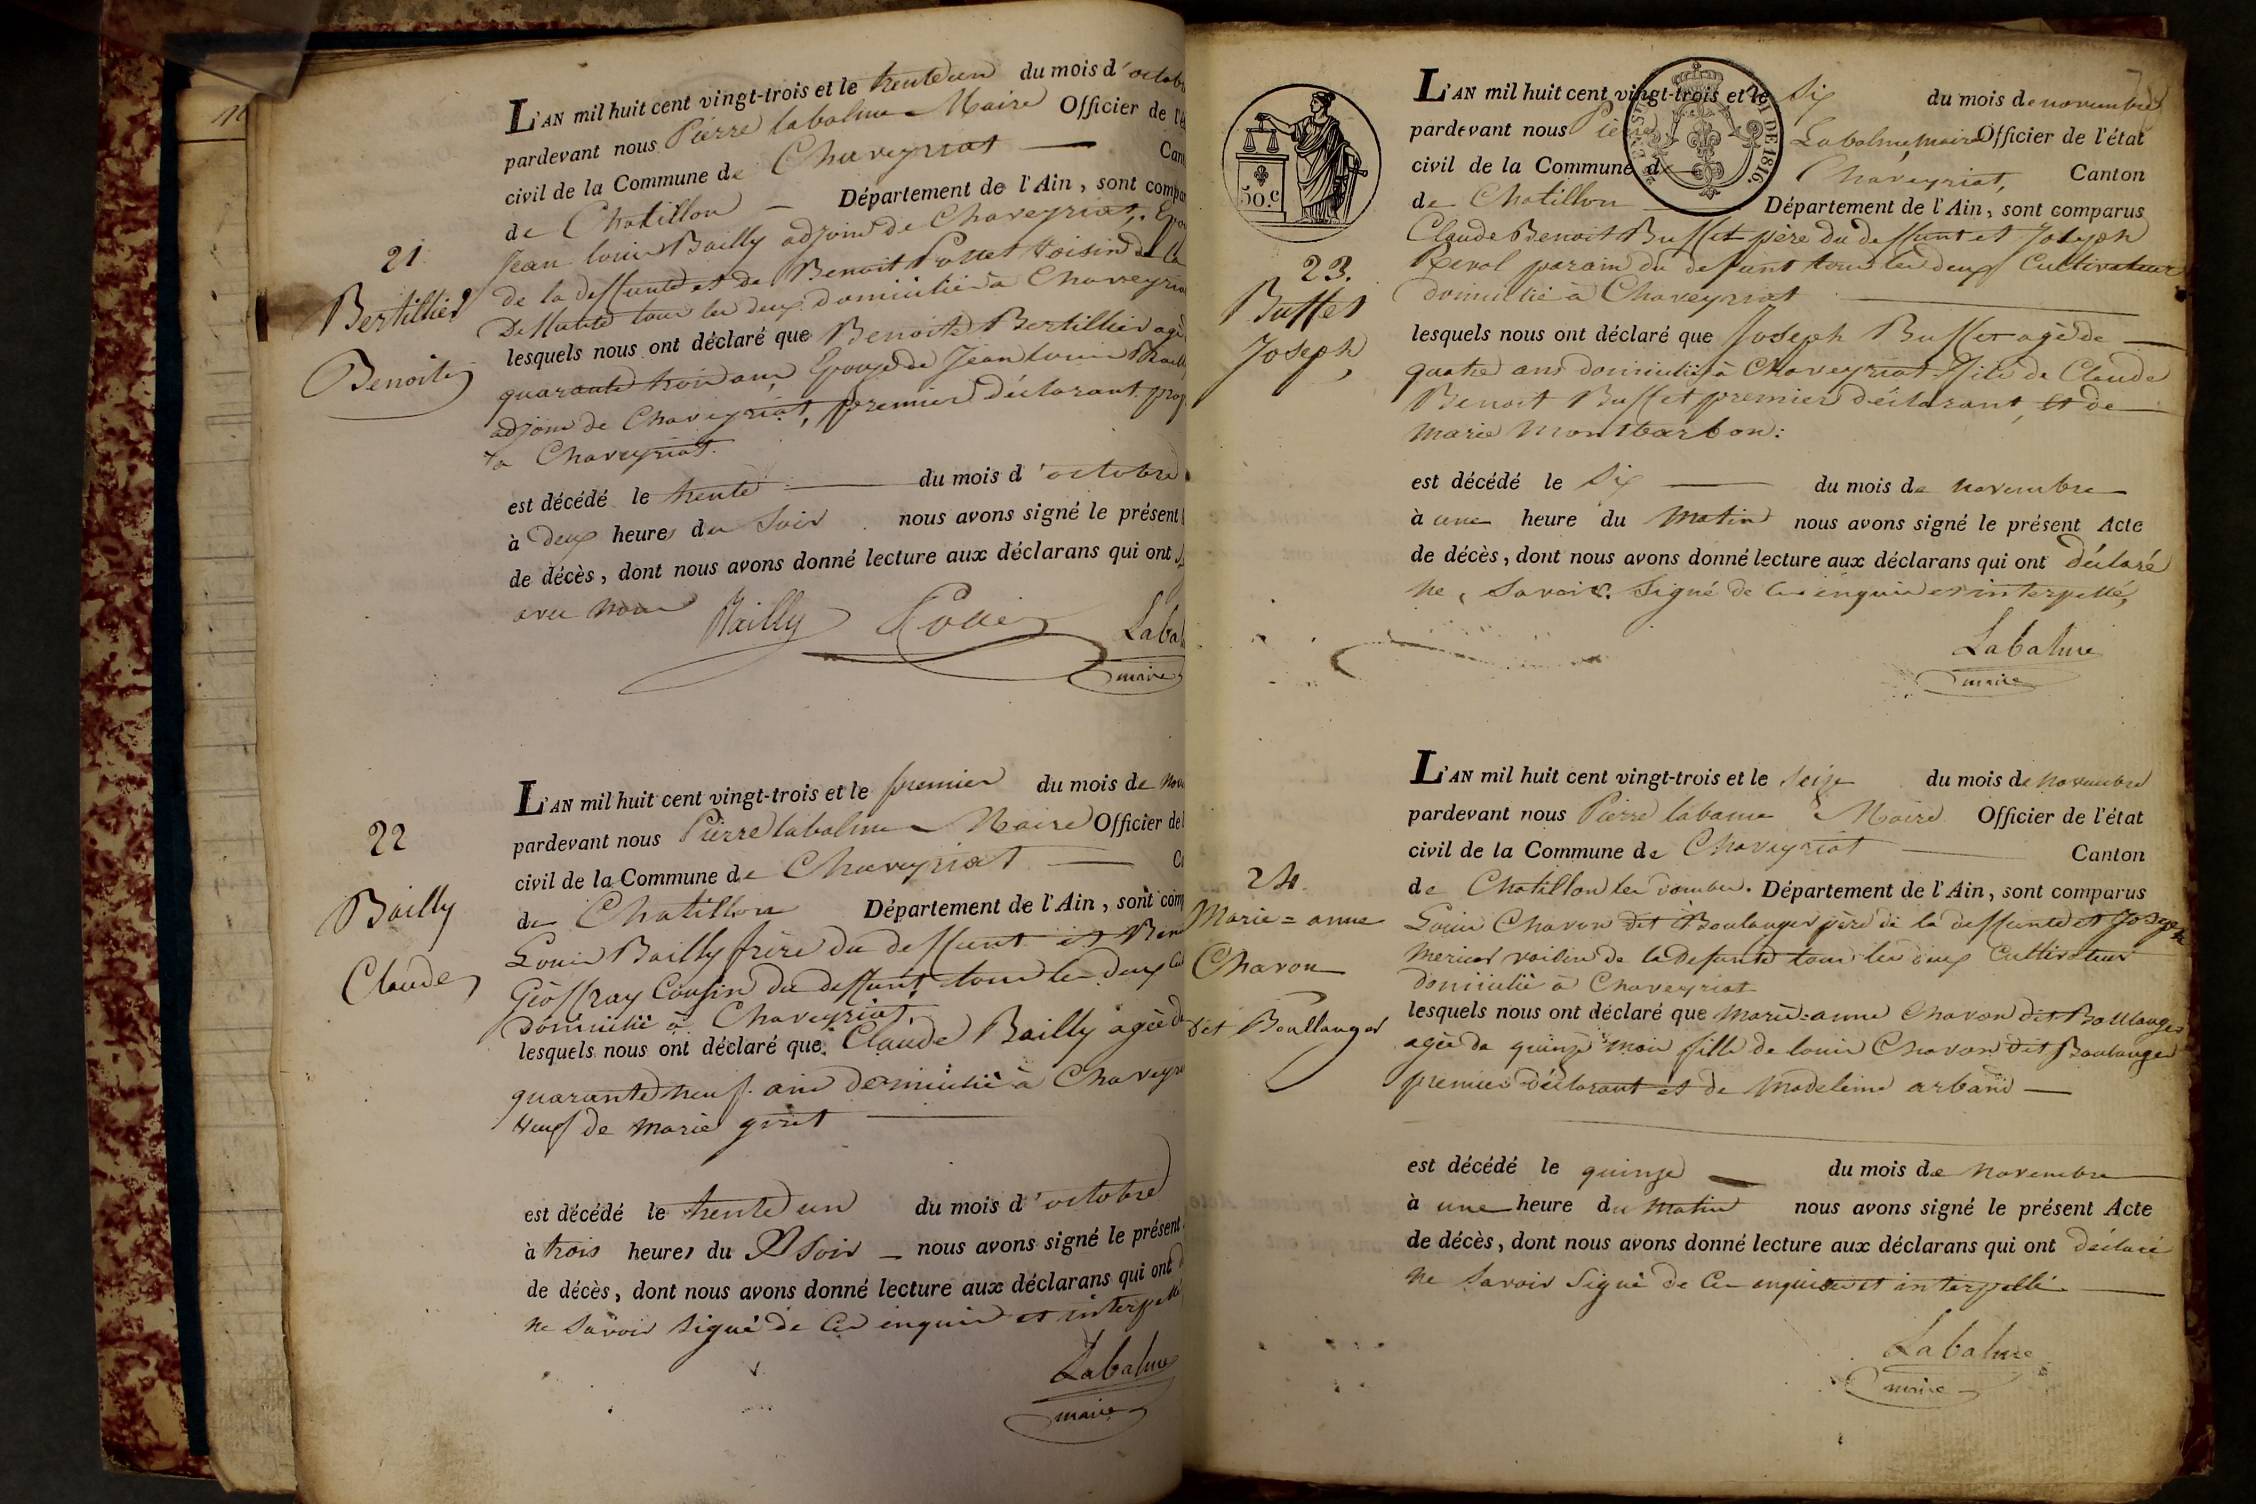 21
Bertillier
Benoite
L'AN mil huit cent vingt-trois et le trente un du mois d'octob
pardevant nous Pierre labalme Maire Officier de l'é
civil de la Commune de Chaveyriat Can
de Chatillon Département de l'Ain, sont compar
Jean louis Bailly adjoint de Chaveyriat, Epou
de la deffunte et de Benoit voisin de la
Deffunte tous les deux domicilié à Chaveyria
lesquels nous ont déclaré que Benoite Bertillier agé
quarante trois ans Epouse de Jean louis Bailly
adjoint de Chaveyriat, premier déclarant
à Chaveyriat.
est décédé le trente du mois d'octobre
à deux heures du Soir nous avons signé le présent
de décès, dont nous avons donné lecture aux déclarans qui ont
avec nous
Bailly Labal
maire
22
Bailly
Claude
L'AN mil huit cent vingt-trois et le premier du mois de nov
pardevant nous Pierre labalme Maire Officier de l
civil de la Commune de Chaveyriat C
de Chatillon Département de l'Ain, sont comp
Louis Bailly frère du deffunt et Ben
Géoffray Cousin du deffunt tous les deux
Domicilié à Chaveyriat.
lesquels nous ont déclaré que Claude Bailly agée de
quarante neuf ans domicilié à Chaveyri
veuf de marie
est décédé le trente un du mois d'octobre
à trois heures du Soir nous avons signé le présent
de décès, dont nous avons donné lecture aux déclarans qui ont
ne Savoir signé de ce enquis et interpellé
Labalme
maire
50.C
LOI DE 1816.
23.
Buffet
Joseph
L'AN mil huit cent vingt-trois et le Six du mois de novembre
pardevant nous Pierre Labalme maire Officier de l'état
civil de la Commune de Chaveyriat, Canton
de Chatillon Département de l'Ain, sont comparus
Claude Benoit Buffet père du deffunt et Joseph
Revol parain du defunt tous les deux Cultivateur
domicilié à Chaveyriat
lesquels nous ont déclaré que Joseph Buffet agè de
quatre ans domicilié à Chaveyriat fils de Claude
Benoit Buffet premier déclarant, et de
marie Montbarbon:
est décédé le Six du mois de novembre
à une heure du Matin nous avons signé le présent Acte
de décès, dont nous avons donné lecture aux déclarans qui ont déclaré
ne Savoir Signé de ce enquis et interpellé,
Labalme
maire
24.
Marie=anne
Chavon
dit Boullanger
L'AN mil huit cent vingt-trois et le Seize du mois de novembre
pardevant nous Pierre labame Maire Officier de l'état
civil de la Commune de Chaveyriat Canton
de Chatillon les dombes. Département de l'Ain, sont comparus
Louis Chavon dit Boulanger père de la deffunte et Joseph
Mericot voisin de la Defunte tous les deux Cultivateur
domicilié à Chaveyriat
lesquels nous ont déclaré que Marie=anne Chavon dit Boullanger
agée de quinze mois fille de louis Chavon dit Boulanger
premier déclarant et de Madeleine arband
est décédé le quinze du mois de novembre
à une heure du Matin nous avons signé le présent Acte
de décès, dont nous avons donné lecture aux déclarans qui ont déclaré
ne Savoir Signé de ce enquis et interpellé
Labalme
maire